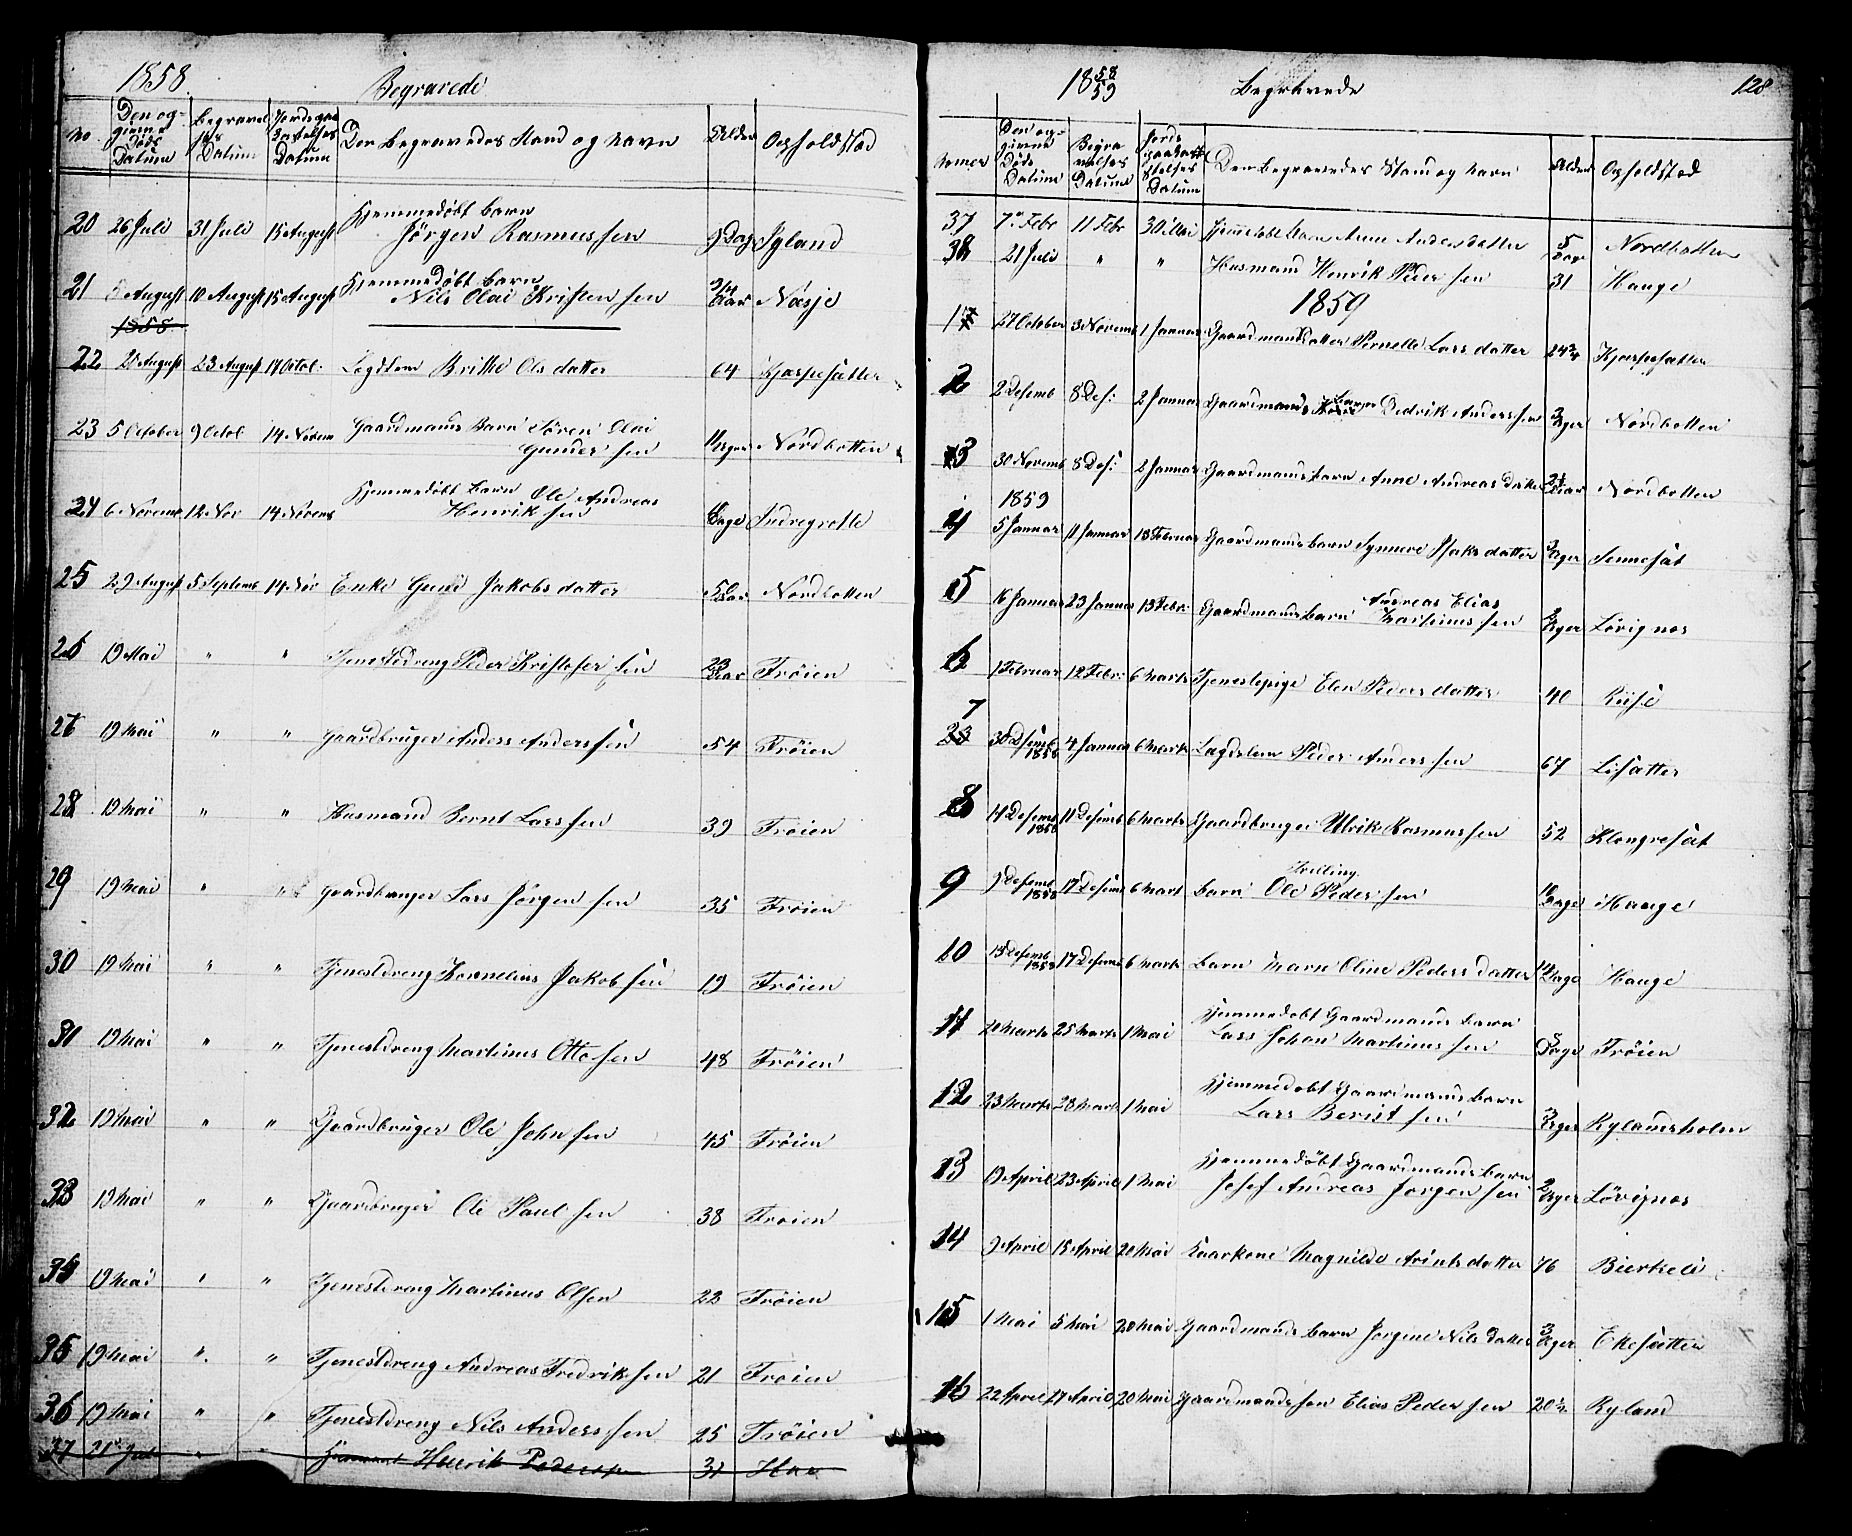 1858. Begravede
No. Den op-givne Døds Datum Begravelses Datum Jordspaakastelses Datum Den Begravedes Stand og Navn Alder Opholdsted
20 26 Juli 31 Juli 15 August Hjemmedøbt Barn
Jørgen Rasmussen 9 Dag Ryland
21 8 August 10 August 15 August Hjemmedøbt Barn
Nils Olai Kristensen 3/4 Aar Nøsje
1858.
22 20 August 23 August 17 Octob: Legdlem Britthe Olsdatter 64 Hjaspesætter
23 5 October 9 Octob 14 Novem Gaardmands Barn Søren Olai
Gunder sen 11 Uger Nordbotten
24 6 Novemb 12 Nov 14 Novemb Hjemmedøbt Barn Ole Andreas
Henriksen Dage Indregrotte
25 29 August 5 Septemb 14 Nov Enke Guni Jakobsdatter Aar Nordbotten
26 19 Mai " " Tjenestdreng Peder Kristofersen 23 Aar Frøien
27 19 Mai " " Gaardbruger Anders Anderssen 54 Frøien
28 19 Mai " " Husmand Bernt Larssen 39 Frøien
29 19 Mai " " Gaardbruger Lars Jørgensen 35 Frøien
30 19 Mai " " Tjenestdreng Kornelius Jakobsen 19 Frøien
31 19 Mai " " Tjenestdreng Martinus Ottosen 48 Frøien
32 19 Mai " " Gaardbruger Ole Johnsen 45 Frøien
33 19 Mai " " Gaardbruger Ole Paulsen 38 Frøien
34 19 Mai " " Tjenestdreng Martinus Olsen 22 Frøien
35 19 Mai " " Tjenestdreng Andreas Fredriksen 21 Frøien
36 19 Mai " " Tjenestdreng Nils Anderssen 25 Frøien
37 21 Juli " " Husmand Henrik Pedersen 31 Hau
18 58/59 Begravede 128
Numer Den op-givne Døds Datum Begravelses Datum Jordspaakastelses Datum Den Begravedes Stand og Navn Alder Opholdsted
37 7de Febr 11 Febr 30 Mai Hjemedøbt Barn Anne Andersdatter 5 Dage Nordbotten
38 21 Juli " " Husmand Henrik Pedersen 31 Hauge
1859
1 27 October 3 Novemb 1 Januar Gaardmandsdatter Pernille Larsdatter 24 3/4 Hjaspesætter
2 2 Desemb 8 Des: 2 Januar Gaardmands Barn Didrik Anderssen 3 Uger Nordbotten
3 30 Novemb 8 Des: 2 Januar Gaardmands barn Anne Andreasdatter Aar Nordbotten
1859
4 5 Januar 11 Januar 13 Februar Gaardmands barn Synneve Isaksdatter 3 Uger Sennesæt
5 16 Januar 23 Januar 13 Febr: Gaardmands Barn Andreas Elias
Mathiassen Uger Løvignæs
6 1 Februar 12 Febr: 6 Marts Tjenestepige Elen Pedersdatter 40 Riise
7
30 Desemb 1858 4 Januar 6 Mart Legdslem Peder Anderssen 67 Lisætter
8 4 Desemb 1858 11 Desemb 6 Marts Gaardbruger Ulrik Rasmussen 52 Klongresæt
9 9 Desemb 1858 17 Desemb 6 Mart Barn Trilling
Ole Pedersen 10 Dage Hauge
10 13 Desemb 1858 17 Desemb 6 Marts Barn Marn Oline Pedersdatter 14 Dage Hauge
11 20 Marts 25 Marts 1 Mai Hjemmedøbt Gaardmands Barn
Lars Johan Martinussen 5 Dage Frøien
12 23 Marts 28 Marts 1 Mai Hjemmedøbt Gaardmands barn
Lars Berntsen 3 Uger Rylandsholm
13 19 April 23 April 1 Mai Hjemmedøbt Gaardmands barn
Josef Andreas Jørgensen 2 Uger Løvignæs
14 9 April 15 April 20 Mai Kaarkone Magnilde Arintsdatter 76 Bierkeli
15 1 Mai 5 Mai 20 Mai Gaardmands barn Jørgine Nilsdatter 3 Uger Ekesætter
16 22 April 27 April 20 Mai Gaardmandssøn Elias Pedersen 20 1/2 Ryland